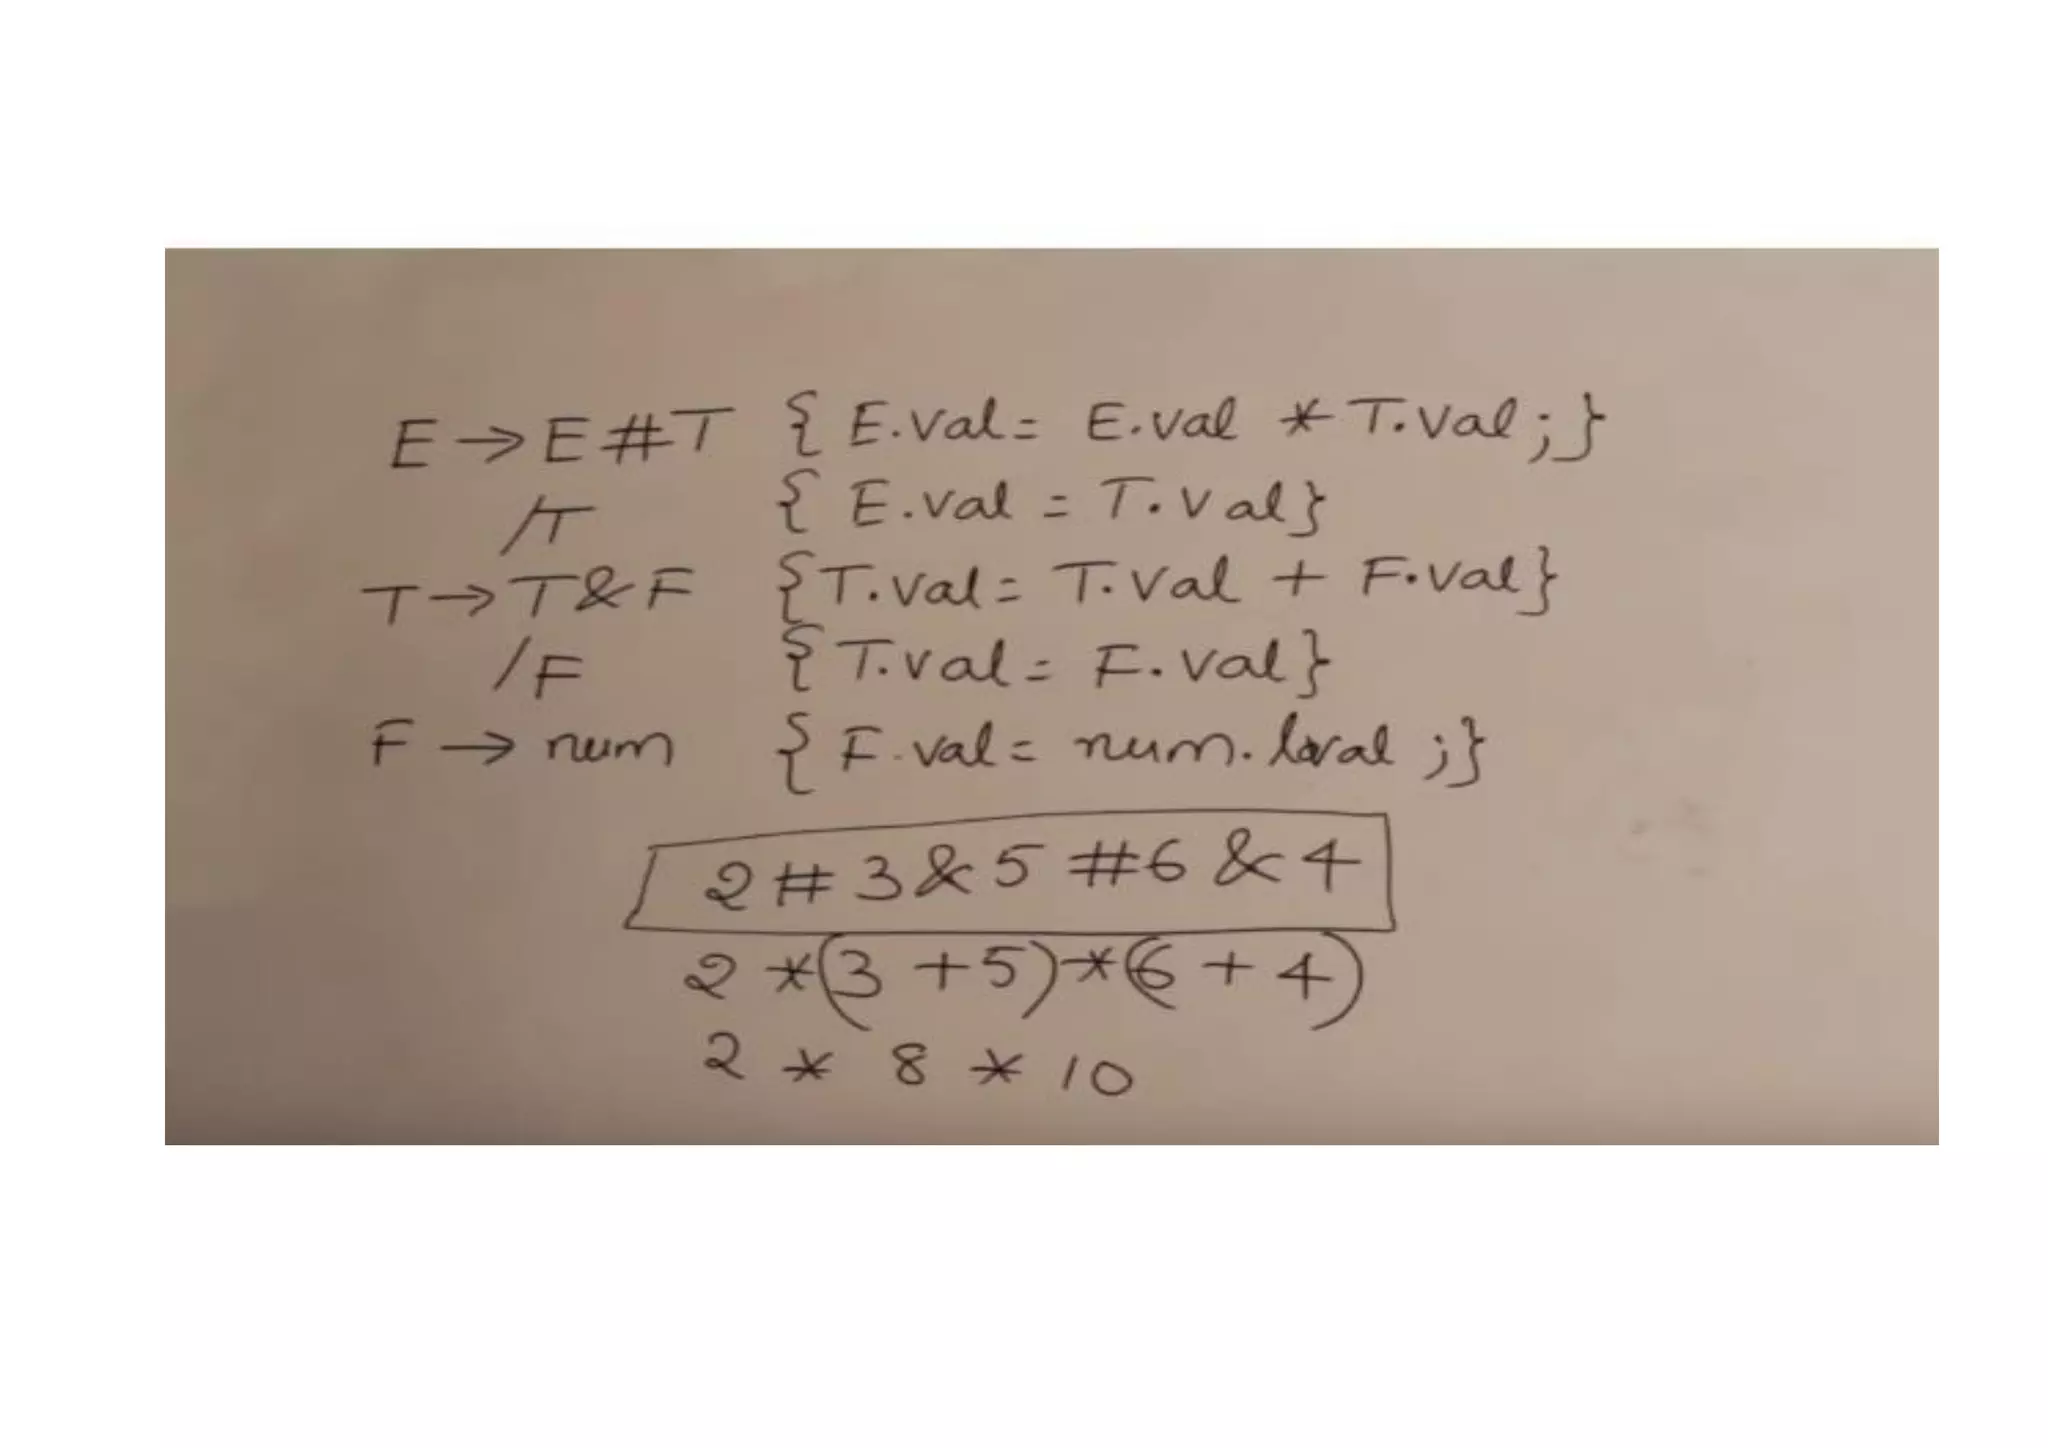 E → E # T { E.val = E.val * T.val ; }
/T { E.val = T.val }
T → T & F { T.val = T.val + F.val }
/F { T.val = F.val }
F → num { F.val = num.lval ; }
2 # 3 & 5 # 6 & 4
2 * (3 + 5) * (6 + 4)
2 * 8 * 10